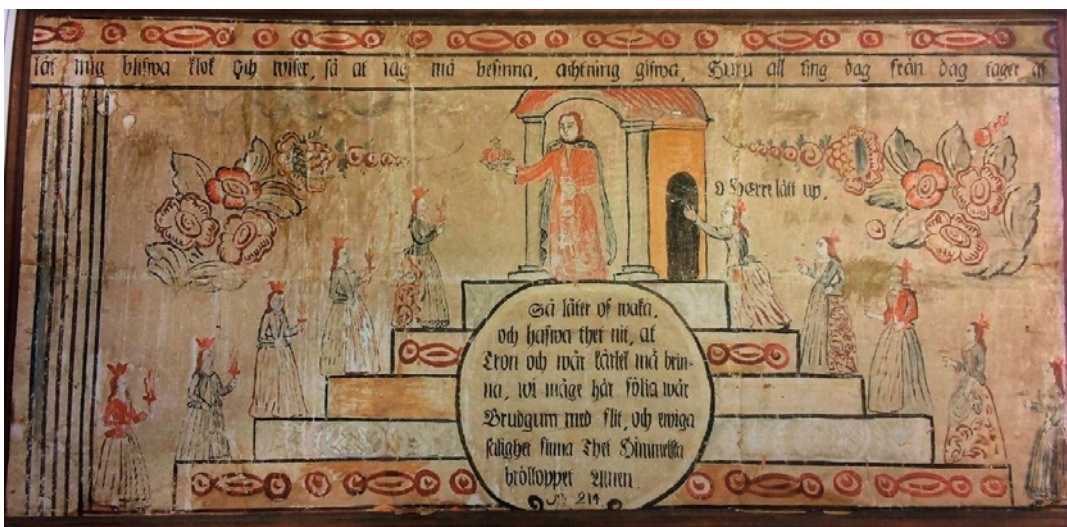 låt mig blifwa klok och wiser, så at iag må besinna, achtning gifwa, Huru all ting dag från dag tager af
O HErre lått up.
Så låter oss waka,
och hafwa thet nit, at
Tron och wår kärlek må brin-
na, wi måge här fölia wår
Brudgum med flit, och ewiga
salighet finna Thet Himmelska
brölloppet Amen
N: 214